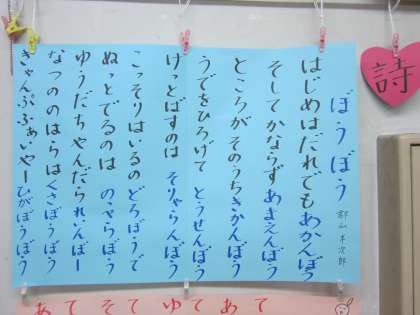 詩
ぼうぼう
郡山半次郎
はじめはだれでも あかんぼう
そしてかならず あまえんぼう
ところがそのうち きかんぼう
うでをひろげて とうせんぼう
けっとばすのは そりゃらんぼう
こっそりはいるの どろぼうで
ぬっとでるのは のっぺらぼう
ゆうだちやんだら れいんぼー
なつののはらは くさぼうぼう
きゃんぷふぁいやー ひがぼうぼう
あてそてゆてあて